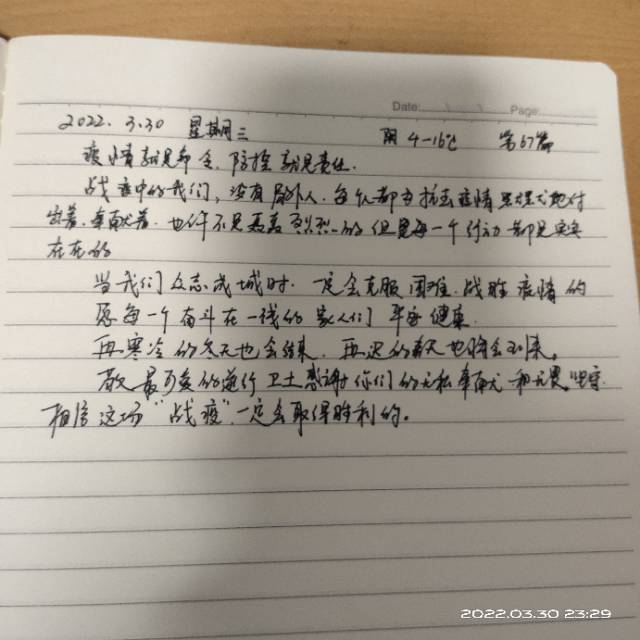 Date: Page:
2022.3.30 星期三 阴 4-16℃ 第67篇
疫情就是命令,防控就是责任.
战疫中的我们,没有局外人.每个人都为抗击疫情默默地付
出着.奉献着.也许不是轰轰烈烈的但是每一个行动都是实实
在在的
当我们众志成城时.一定会克服困难.战胜疫情的
愿每一个奋斗在一线的家人们平安健康.
再寒冷的冬天也会结束.再迟的春天也将会到来。
敬最可爱的逆行卫士感谢你们的无私奉献和无畏坚守.
相信这场“战疫”.一定会取得胜利的。
2022.03.30 23:29